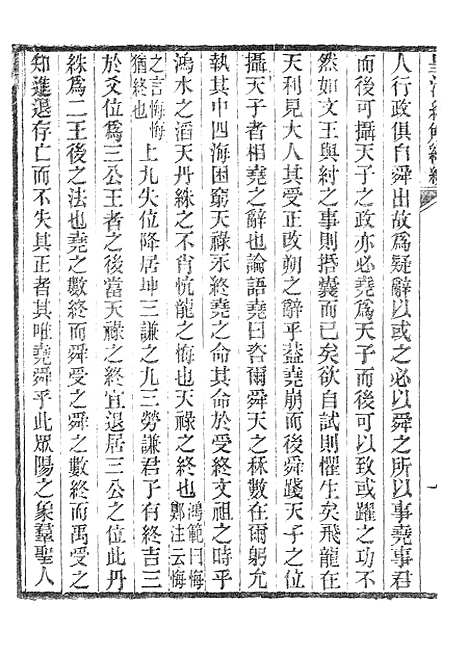 皇清經解續編
人行政俱自舜出故爲疑辭以或之必以舜之所以事堯事君
而後可攝天子之政亦必堯爲天子而後可以致或躍之功不
然如文王與紂之事則括囊而已矣欲自試則懼生矣飛龍在
天利見大人其受正改朔之辭乎蓋堯崩而後舜踐天子之位
攝天子者相堯之辭也論語堯曰咨爾舜天之秝數在爾躬允
執其中四海困窮天祿永終堯之命其命於受終文祖之時乎
鴻水之滔天丹絑之不肖忼龍之悔也天祿之終也鴻範曰悔
鄭注云悔
之言悔悔
猶終也上九失位降居坤三謙之九三勞謙君子有終吉三
於爻位爲三公王者之後當天祿之終宜退居三公之位此丹
絑爲二王後之法也堯之數終而舜受之舜之數終而禹受之
知進退存亡而不失其正者其唯堯舜乎此眾陽之象羣聖人